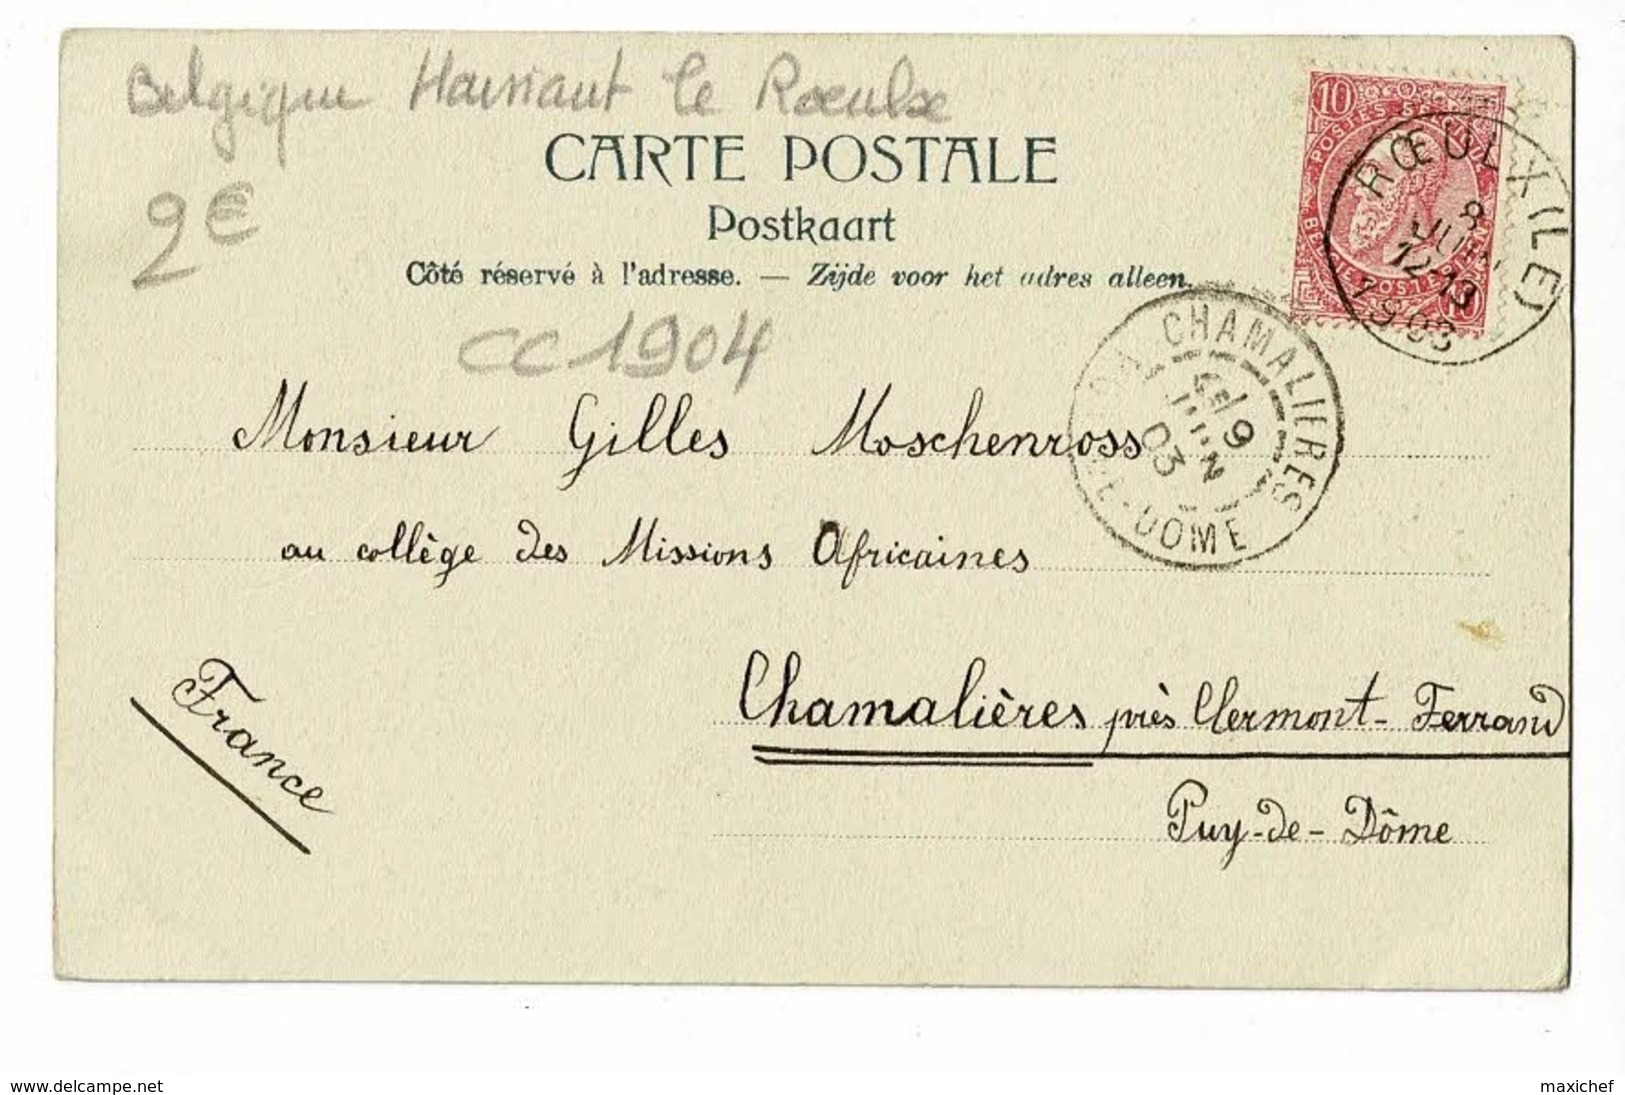 Belgique Hainaut Le Roeulx
2€
CARTE POSTALE
Postkaart
Côté réservé à l'adresse. — Zijde voor het adres alleen.
10
RŒULX (LE)
8
12-13
1903
CC 1904
CHAMALIERES
9
JUIN
03
DOME
Monsieur Gilles Moschenross
au collège des Missions Africaines
France
Chamalières près Clermont-Ferrand
Puy-de-Dôme
www.delcampe.net
maxichef